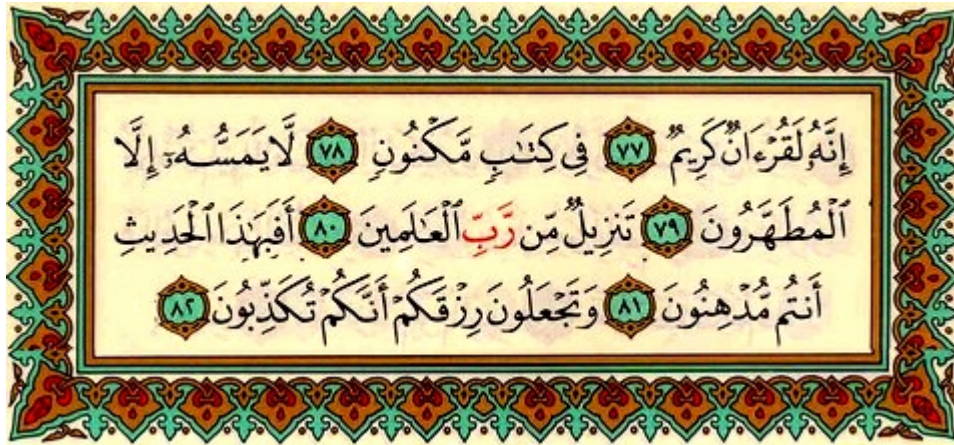 إِنَّهُۥ لَقُرْءَانٌ كَرِيمٌ ٧٧ فِى كِتَٰبٍ مَّكْنُونٍ ٧٨ لَّا يَمَسُّهُۥٓ إِلَّا
ٱلْمُطَهَّرُونَ ٧٩ تَنزِيلٌ مِّن رَّبِّ ٱلْعَٰلَمِينَ ٨٠ أَفَبِهَٰذَا ٱلْحَدِيثِ
أَنتُم مُّدْهِنُونَ ٨١ وَتَجْعَلُونَ رِزْقَكُمْ أَنَّكُمْ تُكَذِّبُونَ ٨٢